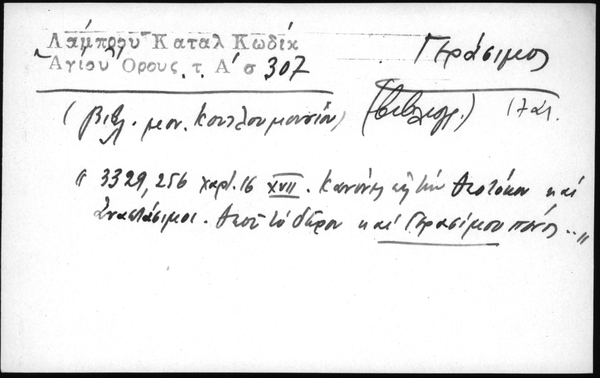 Λάμπρου Καταλ Κωδίκ
Ἁγίου Ὄρους τ. Α' σ 307
Γεράσιμος
(βιβλ. μον. Κουτλουμουσίου) (βιβλιογρ.) 17 αι.
" 3329, 256 χαρτ. 16 XVII. Κανόνες εἰς τὴν Θεοτόκον καὶ
Ἀναστάσιμοι. Θεοῦ τὸ δῶρον καὶ Γερασίμου πόνος.. "